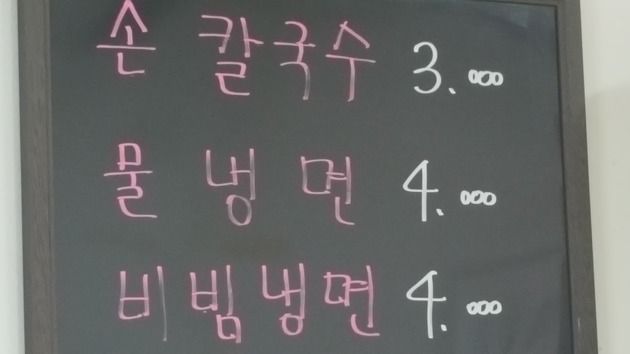 손 칼국수 3.000
물 냉 면 4.000
비빔냉면 4.000